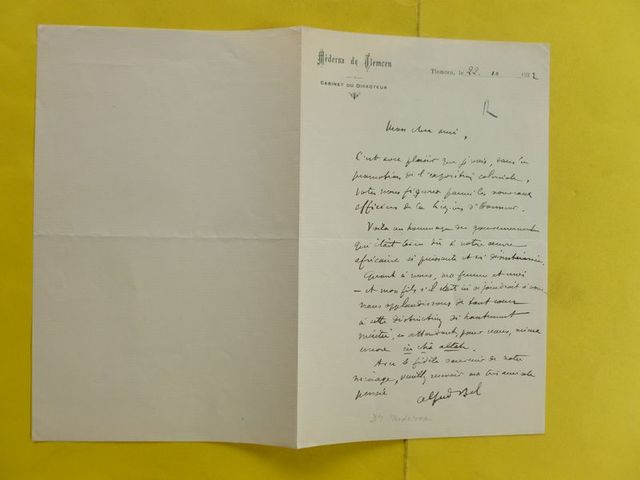 Médersa de Tlemcen
CABINET DU DIRECTEUR
Tlemcen, le 22 10 1932
R
Mon cher ami,
C'est avec plaisir que je vois, dans la
promotion de l'exposition coloniale,
votre nom figurer parmi les nouveaux
officiers de la Légion d'Honneur.
Voilà un hommage du gouvernement
qui était bien dû à votre œuvre
africaine si puissante et si désintéressée.
Quant à nous, ma femme et moi
— et mon fils s'il était ici se joindrait à nous
nous applaudissons de tout cœur
à cette distinction si hautement
méritée, en attendant, pour vous, mieux
encore in châ allah.
Avec le fidèle souvenir de notre
ménage, veuillez recevoir ma très amicale
pensée
Alfred Bel